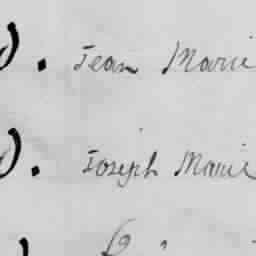 ). Jean Marie
). Joseph Marie